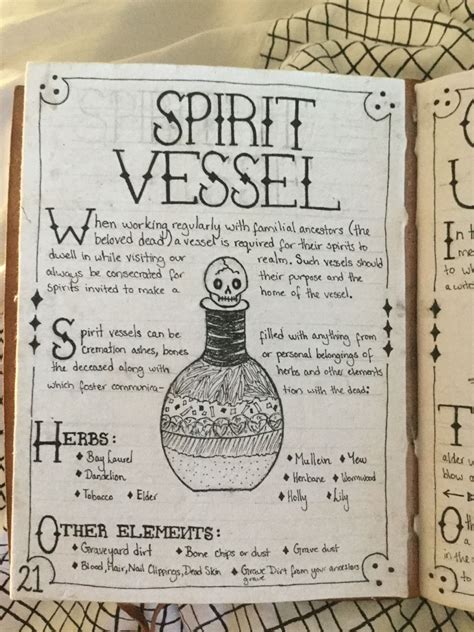 SPIRIT
VESSEL
When working regularly with familial ancestors (the
beloved dead) a vessel is required for their spirits to
dwell in while visiting our realm. Such vessels should
always be consecrated for their purpose and the
spirits invited to make a home of the vessel.
Spirit vessels can be filled with anything from
cremation ashes, bones or personal belongings of
the deceased along with herbs and other elements
which foster communica- tion with the dead:
HERBS:
♦ Bay Laurel ♦ Mullein ♦ Yew
♦ Dandelion ♦ Henbane ♦ Wormwood
♦ Tobacco ♦ Elder ♦ Holly ♦ Lily
OTHER ELEMENTS:
♦ Graveyard dirt ♦ Bone chips or dust ♦ Grave dust
♦ Blood, Hair, Nail Clippings, Dead Skin ♦ Grave Dirt from your ancestors
grave
21
In t
me
to
a witc
T
alder
blow
in the